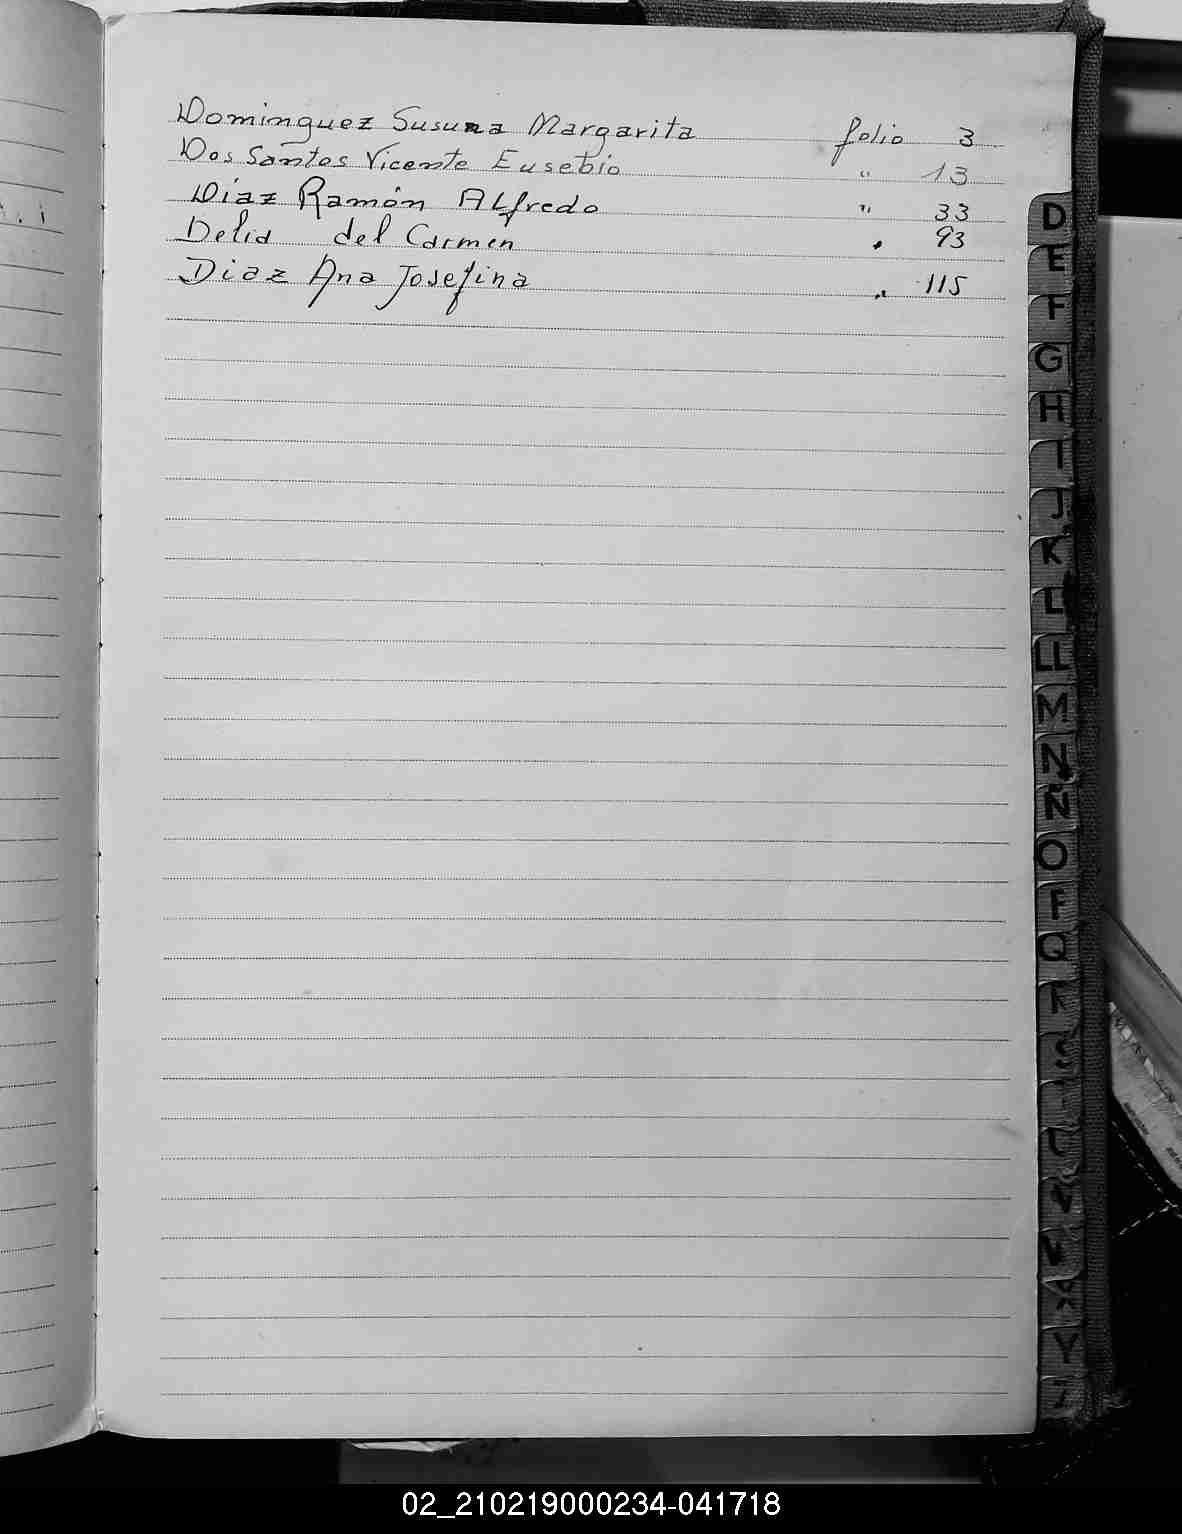 Dominguez Susana Margarita folio 3
Dos Santos Vicente Eusebio " 13
Diaz Ramón Alfredo " 33
Delia del Carmen " 93
Diaz Ana Josefina " 115
D
E
F
G
H
I
J
K
L
LL
M
N
Ñ
O
P
Q
R
S
T
U
V
W
X
Y
Z
02_210219000234-041718